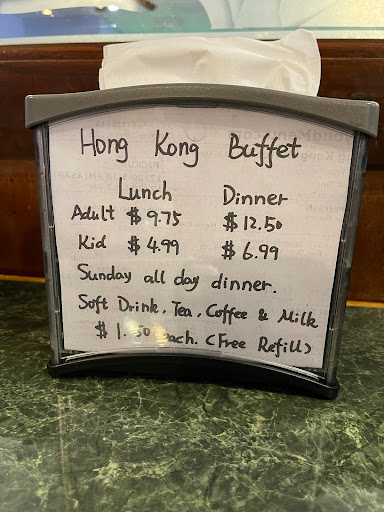 Hong Kong Buffet
Lunch Dinner
Adult $9.75 $12.50
Kid $4.99 $6.99
Sunday all day dinner.
Soft Drink. Tea. Coffee & Milk
$1.50 each. (Free Refills)